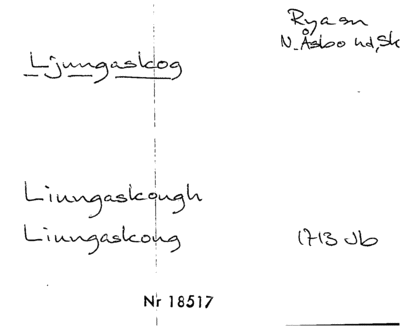 Rya sn
N. Åsbo hd, Sk
Ljungaskog
Liungaskough
Liungaskoug 1713 Jb
Nr 18517